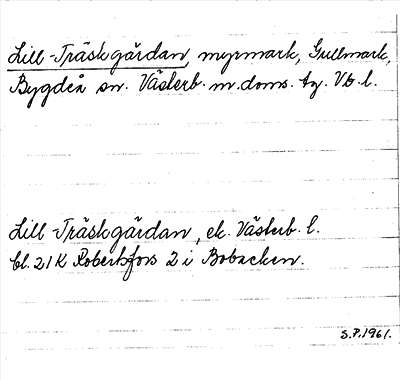 Lill-Träskgärdan, myrmark, Gullmark,
Bygdeå sn. Västerb. m. doms. tg. Vb. l.
Lill-Träskgärdan, ek. Västerb. l.
bl. 21K Robertsfors 2 i Bobacken.
S.P. 1961.